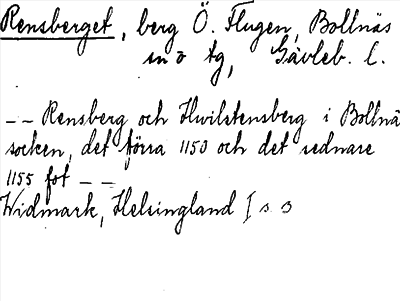 Rensberget, berg Ö. Flugen, Bollnäs
sn o tg, Gävleb. l.
-- Rensberg och Hwilstensberg i Bollnä
socken, det förra 1150 och det sednare
1155 fot --
Widmark, Helsingland I s 3